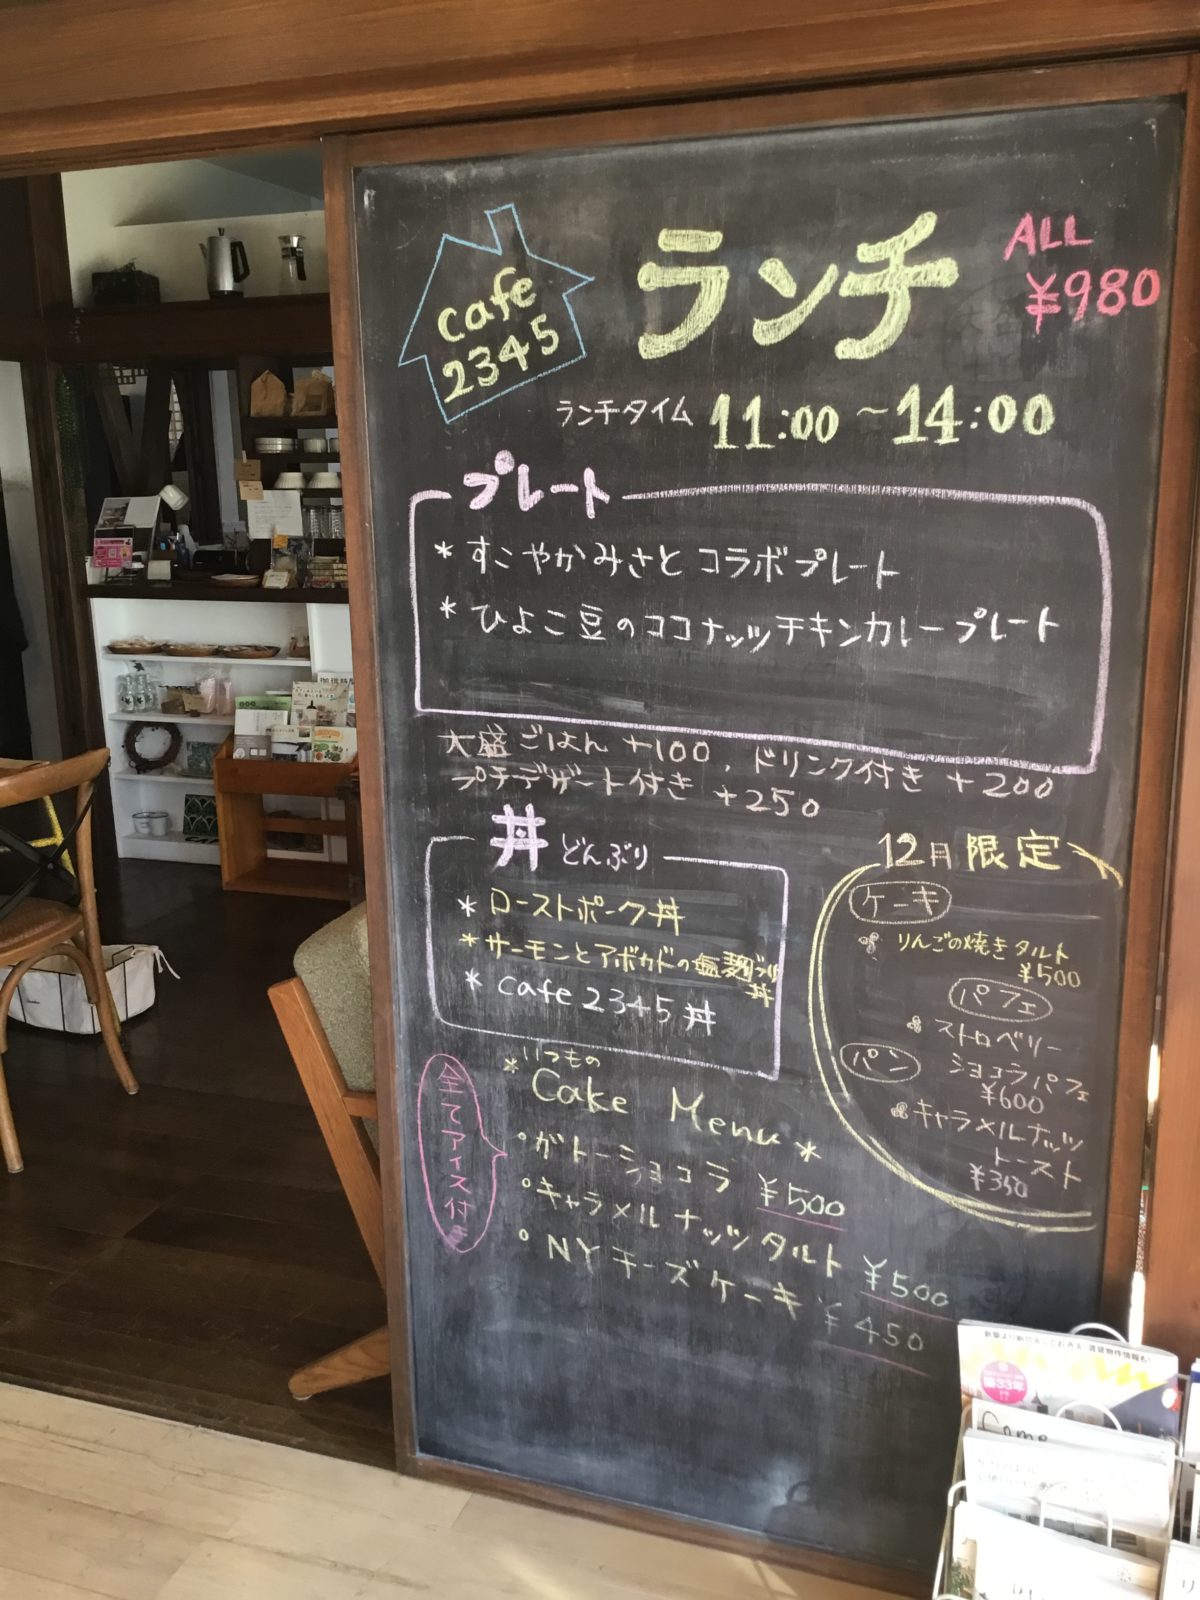 cafe
2345
ランチ
ALL
¥980
ランチタイム 11:00 ~ 14:00
プレート
* すこやかみさと コラボプレート
* ひよこ豆のココナッツチキンカレープレート
大盛ごはん +100, ドリンク付き +200
プチデザート付き +250
丼 どんぶり
* ローストポーク丼
* サーモンとアボカドの塩麹づけ
丼
* cafe 2345 丼
12月限定
ケーキ
りんごの焼きタルト
¥500
パフェ
ストロベリー
ショコラパフェ
¥600
パン
キャラメルナッツ
トースト
¥350
*いつもの
Cake Menu *
全てアイス付
°ガトーショコラ ¥500
°キャラメルナッツタルト ¥500
°NYチーズケーキ ¥450
第33年
!?
Come